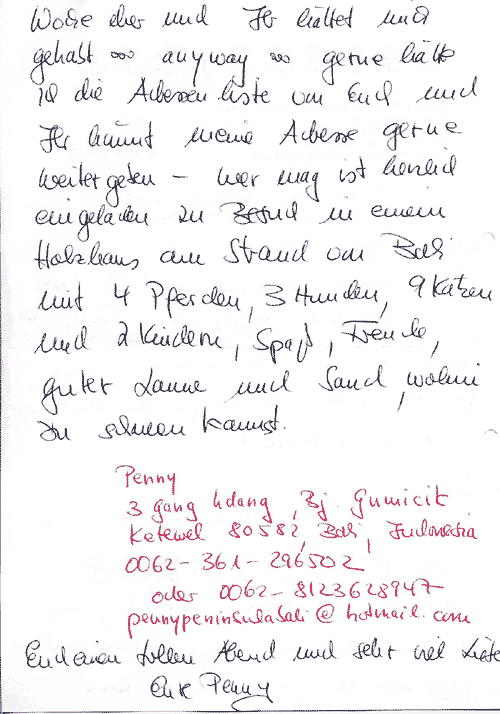 Woche eher und Ihr hättet mich
gehabt ∞ anyway ∞ gerne hätte
ich die Adressenliste von Euch und
Ihr könnt meine Adresse gerne
weitergeben – wer mag ist herzlich
eingeladen zu Besuch in einem
Holzhaus am Strand von Bali
mit 4 Pferden, 3 Hunden, 9 Katzen
und 2 Kindern, Spaß, Freude,
guter Laune und Sand, wohin
Du schauen kannst.
Penny
3 gang Udang, Bj. Gumicik
Ketewel 80582, Bali, Indonesia
0062-361-296502
oder 0062-8123628947
pennypeninsulabali@hotmail.com
Euch einen tollen Abend und sehr viel Liebe
Eure Penny